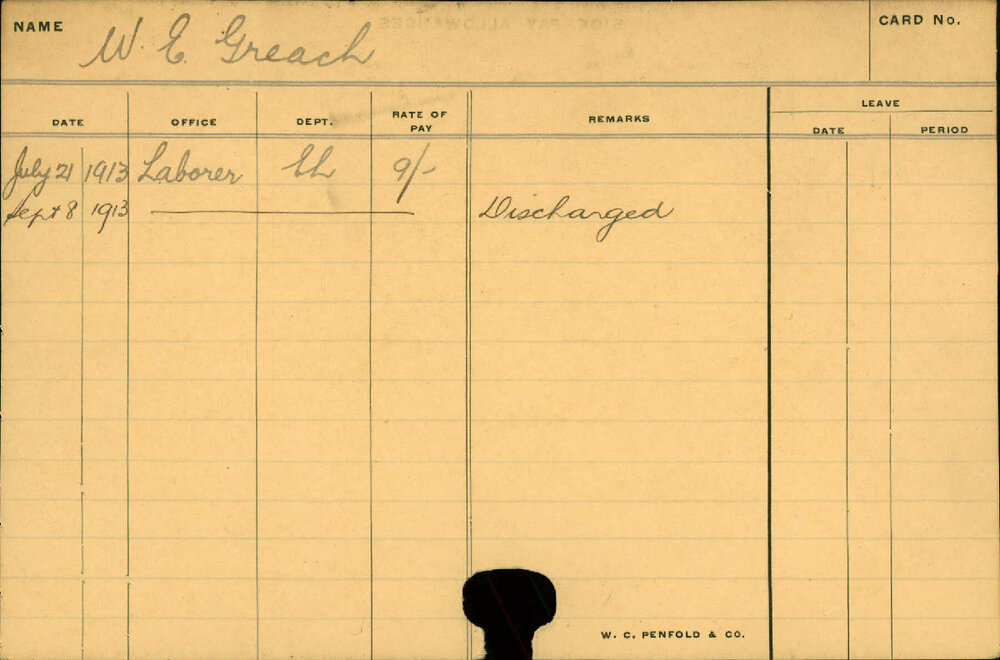 NAME W. E. Greach CARD No.
LEAVE
DATE OFFICE DEPT. RATE OF PAY REMARKS DATE PERIOD
July 21 1913 Laborer EL 9/-
Sept 8 1913 Discharged
W. C. PENFOLD & CO.